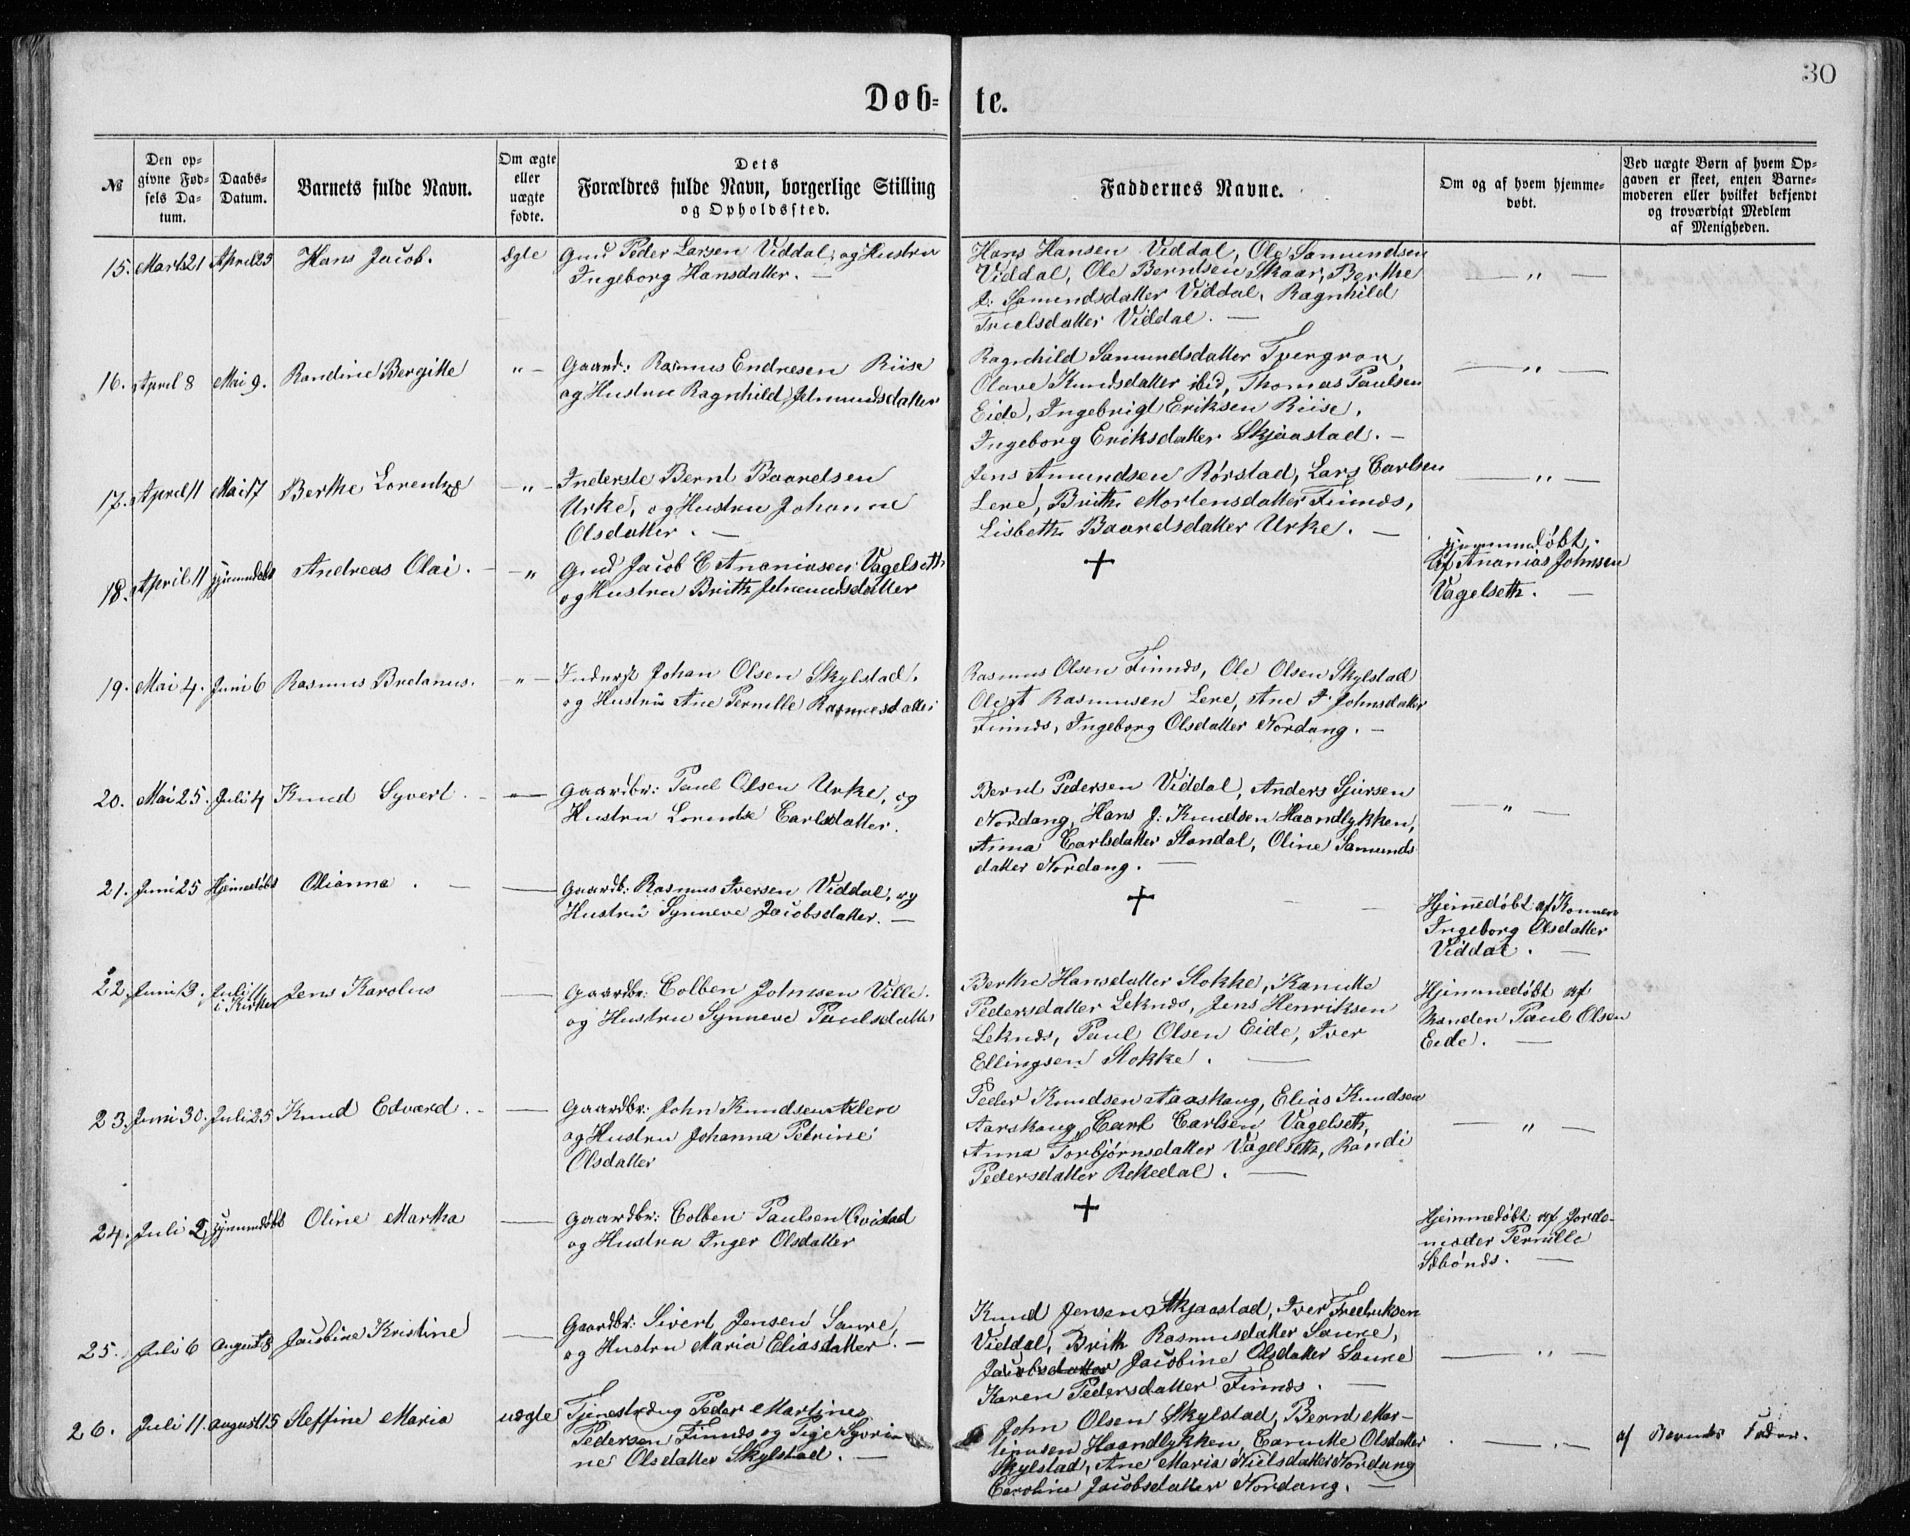 30
Døb-te.
№
Den opgivne Fødsels Datum.
Daabs-Datum.
Barnets fulde Navn.
Om ægte eller uægte fødte.
Dets Forældres fulde Navn, borgerlige Stilling og Opholdssted.
Faddernes Navne.
Om og af hvem hjemmedøbt.
Ved uægte Børn af hvem Opgaven er skeet, enten Barnemoderen eller hvilket bekjendt og troværdigt Medlem af Menigheden.
15. Marts 21 April 25 Hans Jacob. ægte
Gmd Peder Larsen Viddal, og Hustru
Ingeborg Hansdatter. —
Hans Hansen Viddal, Ole Samundsen
Viddal, Ole Berntsen Skaar, Berthe
J: Samundsdatter Viddal, Ragnhild
Truelsdatter Viddal. —
— " —
16. April 8 Mai 9. Randine Bergitte " —
Gaard: Rasmus Endresen Riise
og Hustru Ragnhild Jetmundsdatter
Ragnhild Samundsdatter Tvergrov,
Olave Knudsdatter ibid, Thomas Paulsen
Eide, Ingebrigt Eriksen Riise,
Ingeborg Eriksdatter Skjaastad. —
— " —
17. April 11 Mai 17 Berthe Lorentze — " —
Inderste Bernt Baardsen
Urke, og Hustru Johanne
Olsdatter. —
Jens Amundsen Rørstad, Lars Carlsen
Lere, Brith Mortensdatter Finnæs,
Lisbeth Baardsdatter Urke. —
— " —
18. April 11 hjemmedøbt Andreas Olai. — "
Gmd Jacob E Ananiasen Vagelseth
og Hustru Brith Jetmundsdatter
+
hjemmedøbt.
af Ananias Johnsen
Vagelseth. —
19. Mai 4. Juni 6 Rasmus Bretanus. — " —
Inderst Johan Olsen Skylstad,
og Hustru Ane Pernille Rasmusdatter
Rasmus Olsen Finnæs, Ole Olsen Skylstad
Ole A Rasmusen Lere, Ane J Johnsdatter
Finnæs, Ingeborg Olsdatter Nordang. —
20. Mai 25. Juli 4 Knud Syvert. — —
Gaardbr: Paul Olsen Urke, og
Hustru Lorentse Carlsdatter.
Bernt Pedersen Viddal, Anders Sjursen
Nordang, Hans J: Knudsen Haandlykken,
Anna Carlsdatter Standal, Oline Samunds
datter Nordang. —
— " —
21. Juni 25 Hjemmedøbt Olianna. — —
Gaardb: Rasmus Iversen Viddal, og
Hustru Synneve Jacobsdatter. —
+
Hjemmedøbt af Konen
Ingeborg Olsdatter
Viddal. —
22. Juni 3. Juli 11 i Kirken Jens Karolus —
Gaardbr: Colben Johnsen Ville.
og Hustru Synneve Paulsdatter
Berthe Hansdatter Stokke, Kanutte
Pedersdatter Leknæs, Jens Henriksen
Leknæs, Paul Olsen Eide, Iver
Ellingsen Stokke. —
Hjemmedøbt af
Manden Paul Olsen
Eide. —
23. Juni 30. Juli 25 Knud Edvard. — —
Gaardbr: John Knudsen
og Hustru Johanna Petrine
Olsdatter
Peder Knudsen Aaaskaug, Elias Knudsen
Aarskaug, Carl Carlsen Vagelseth,
Anna Torbjørnsdatter Vagelseth, Randi
Pedersdatter Rekkedal. —
— " —
24. Juli 2, hjemmedøbt Oline Martha —
Gaardbr: Colben Paulsen Qvistad
og Hustru Inger Olsdatter
+
Hjemmedøbt af Jorde-
moder Pernille
Sæbønæs. —
25. Juli 6 August 8 Jacobine Kristine —
Gaardbr: Sivert Jensen Saure,
og Hustru Maria Eliasdatter. —
Knud Jensen Skjaastad, Iver Fredriksen
Viddal, Brith Rasmusdatter Saure,
Jacobsdatter Jacobine Olsdatter Saure
Karen Pedersdatter Finnæs. —
— " —
26. Juli 11. August 15 Steffine Maria uægte
Tjenestedreng Peder Martines
Pedersen Finnæs og Pige Syvri-
ne Olsdatter Skylstad. —
John Olsen Skylstad, Bernt Mar-
tinusen Haandlykken, Canutte Olsdatter
Skylstad, Ane Maria Nielsdatter Nordang
Caroline Jacobsdatter Nordang. —
— " —
af Barnets Fader.